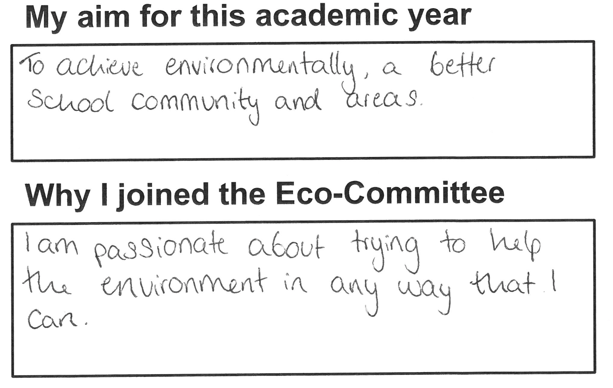 My aim for this academic year
To achieve environmentally, a better
School community and areas.
Why I joined the Eco-Committee
I am passionate about trying to help
the environment in any way that I
can.